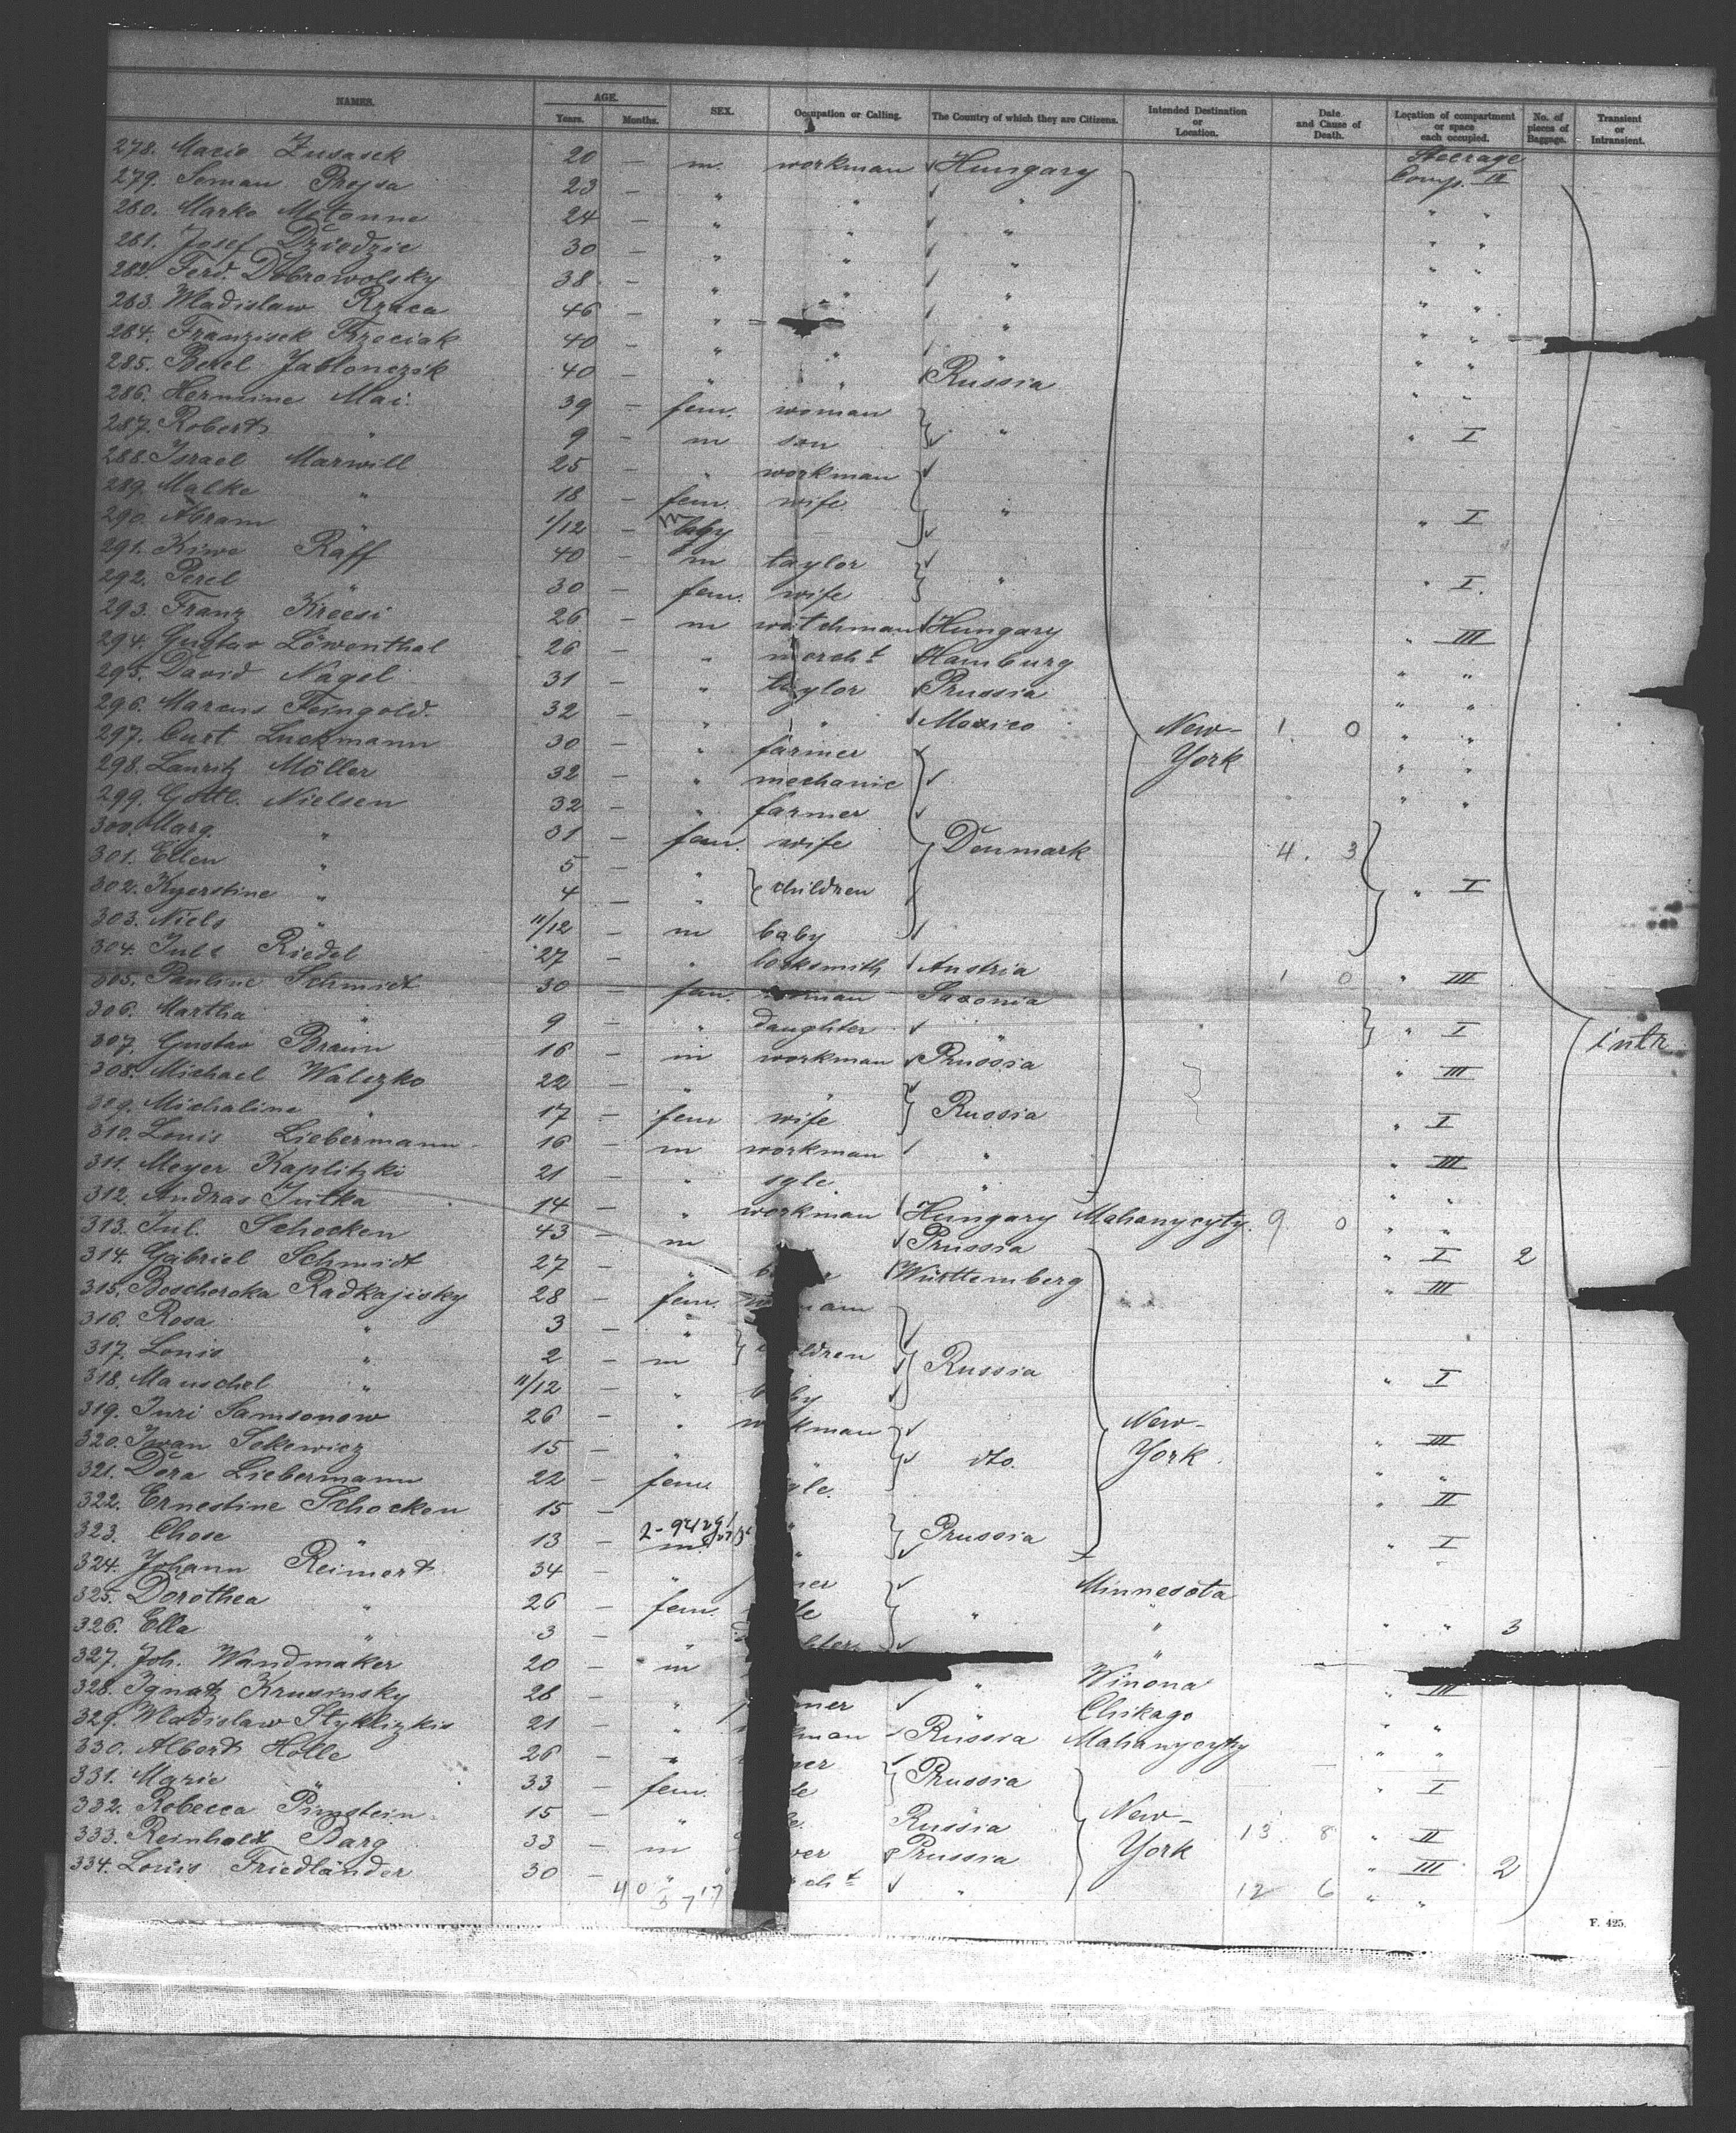 NAMES. AGE. Years. Months. SEX. Occupation or Calling. The Country of which they are Citizens. Intended Destination or Location. Date and Cause of Death. Location of compartment or space each occupied. No. of pieces of Baggage. Transient or Intransient.
278. Macio Zusasek 20 — m. workman Hungary Steerage Comp. III
279. Seman Prejsa 23 — " " " " "
280. Marko Metonne 24 — " " " " "
281. Josef Dziedzic 30 — " " " " "
282. Ferd. Dobrowolsky 38 — " " " " "
283. Wladislaw Rzaca 46 — " " " " "
284. Franzisek Trzeciak 40 — " " " "
285. Berel Jablonczik 40 — " " Russia " "
286. Hermine Mai 39 — fem. woman
287. Robert " 9 — m son " " I
288. Israel Marwill 25 — " workman
289. Malke " 18 — fem. wife "
290. Abram " 1/12 — m baby " I
291. Kiwe Raff 40 — m taylor
292. Perel " 30 — fem. wife " " I.
293. Franz Kreesi 26 — m watchman Hungary " III
294. Gustav Löwenthal 26 " morcht Hamburg " "
295. David Nagel 31 — " taylor Prussia " "
296. Marcus Feingold. 32 — " " Mexico New- 1. 0 " "
297. Curt Luckmann 30 — " farmer York " "
298. Lauritz Möller 32 — " mechanic " "
299. Gottl. Nielsen 32 — " farmer
300. Marg. " 31 — fem. wife Denmark 4. 3
301. Ellen " 5 — " children " I
302. Kyerstine " 4 — "
303. Niels " 11/12 — m baby
304. Juls Riedel 27 — " locksmith Austria 1 0 " III
305. Pauline Schmidt 30 — fem. woman Saxonia
306. Martha " 9 — " daughter " " I
307. Gustav Braun 16 — m workman Prussia " III
308. Michael Walezko 22 — " " Russia
309. Michaline " 17 — fem wife " I
310. Louis Liebermann 16 — m workman " " III
311. Meyer Kaplitzki 21 — " sgle. " " "
312. Andras Jutka 14 — " workman Hungary Mahanycyty. 9 0 " "
313. Jul. Schocken 43 — m Prussia " I 2
314. Gabriel Schmidt 27 — " Württemberg " III
315. Boscheroka Radkajisky 28 — fem.
316. Rosa " 3 — "
317. Louis " 2 — m Russia
318. Mauschel " 11/12 — " " I
319. Juri Samsonow 26 — " New-
320. Iwan Sekewicz 15 — " dto. York " III
321. Dora Liebermann 22 — fem. " "
322. Ernestine Schocken 15 — " II
323. Chose " 13 — m Prussia " I
324. Johann Reimert 34 — " Minnesota
325. Dorothea " 26 — fem. " "
326. Ella " 3 — " " " " 3
327. Joh. Wandmaker 20 — m " Winona " III
328. Ignatz Krusinsky 28 — " Chikago " "
329. Wladislaw Styklizkis 21 — " Russia Mahanycyty " "
330. Albert Holle 26 — " Prussia
331. Marie " 33 — fem. New- " I
332. Rebecca Pimstein 15 — " Russia York 13 8 " II
333. Reinholt Barg 33 — m Prussia " III 2
334. Louis Friedländer 30 — " " 12 6 " "
intr.
F. 425.